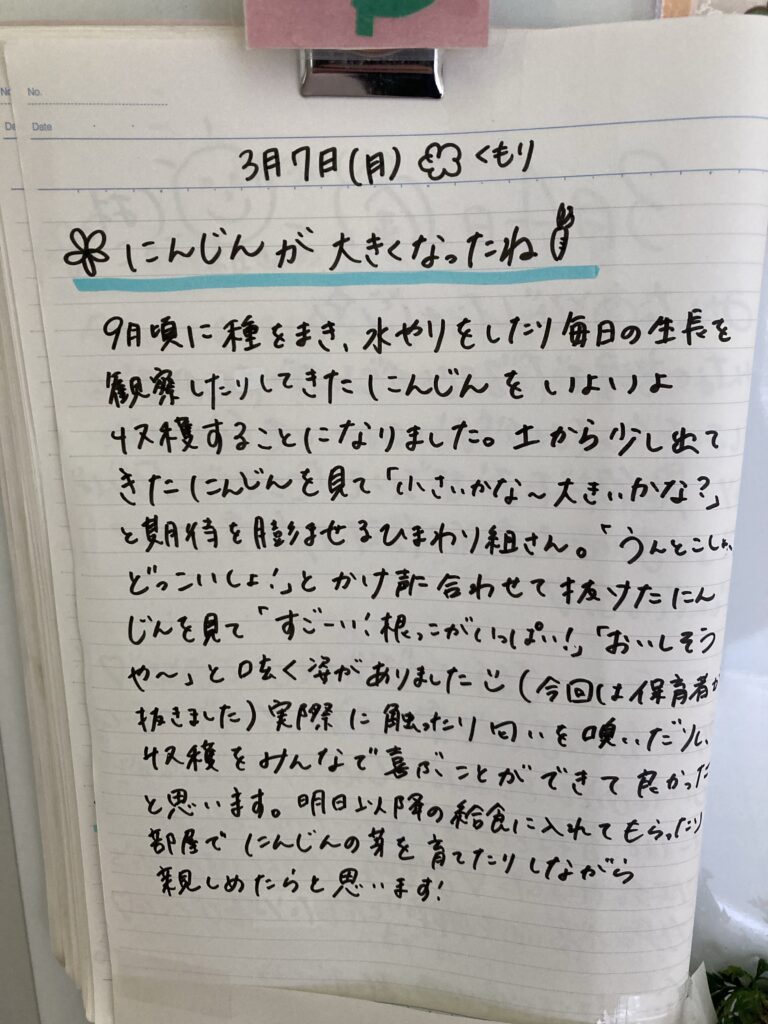 No.
Date
3月7日(月) くもり
にんじんが 大きくなったね
9月頃に種をまき、水やりをしたり毎日の生長を
観察したりしてきたにんじんを いよいよ
収穫することになりました。土から少し出て
きたにんじんを見て「小さいかな〜大きいかな?」
と期待を膨ませるひまわり組さん。「うんとこしょ、
どっこいしょ!」とかけ声に合わせて抜けたにん
じんを見て「すごーい!根っこがいっぱい!」「おいしそう
や〜」と呟く姿がありました (今回は保育者が
抜きました)実際に触ったり匂いを嗅いだりし、
収穫をみんなで喜ぶことができて良かった
と思います。明日以降の給食に入れてもらったり
部屋でにんじんの芽を育てたりしながら
親しめたらと思います!